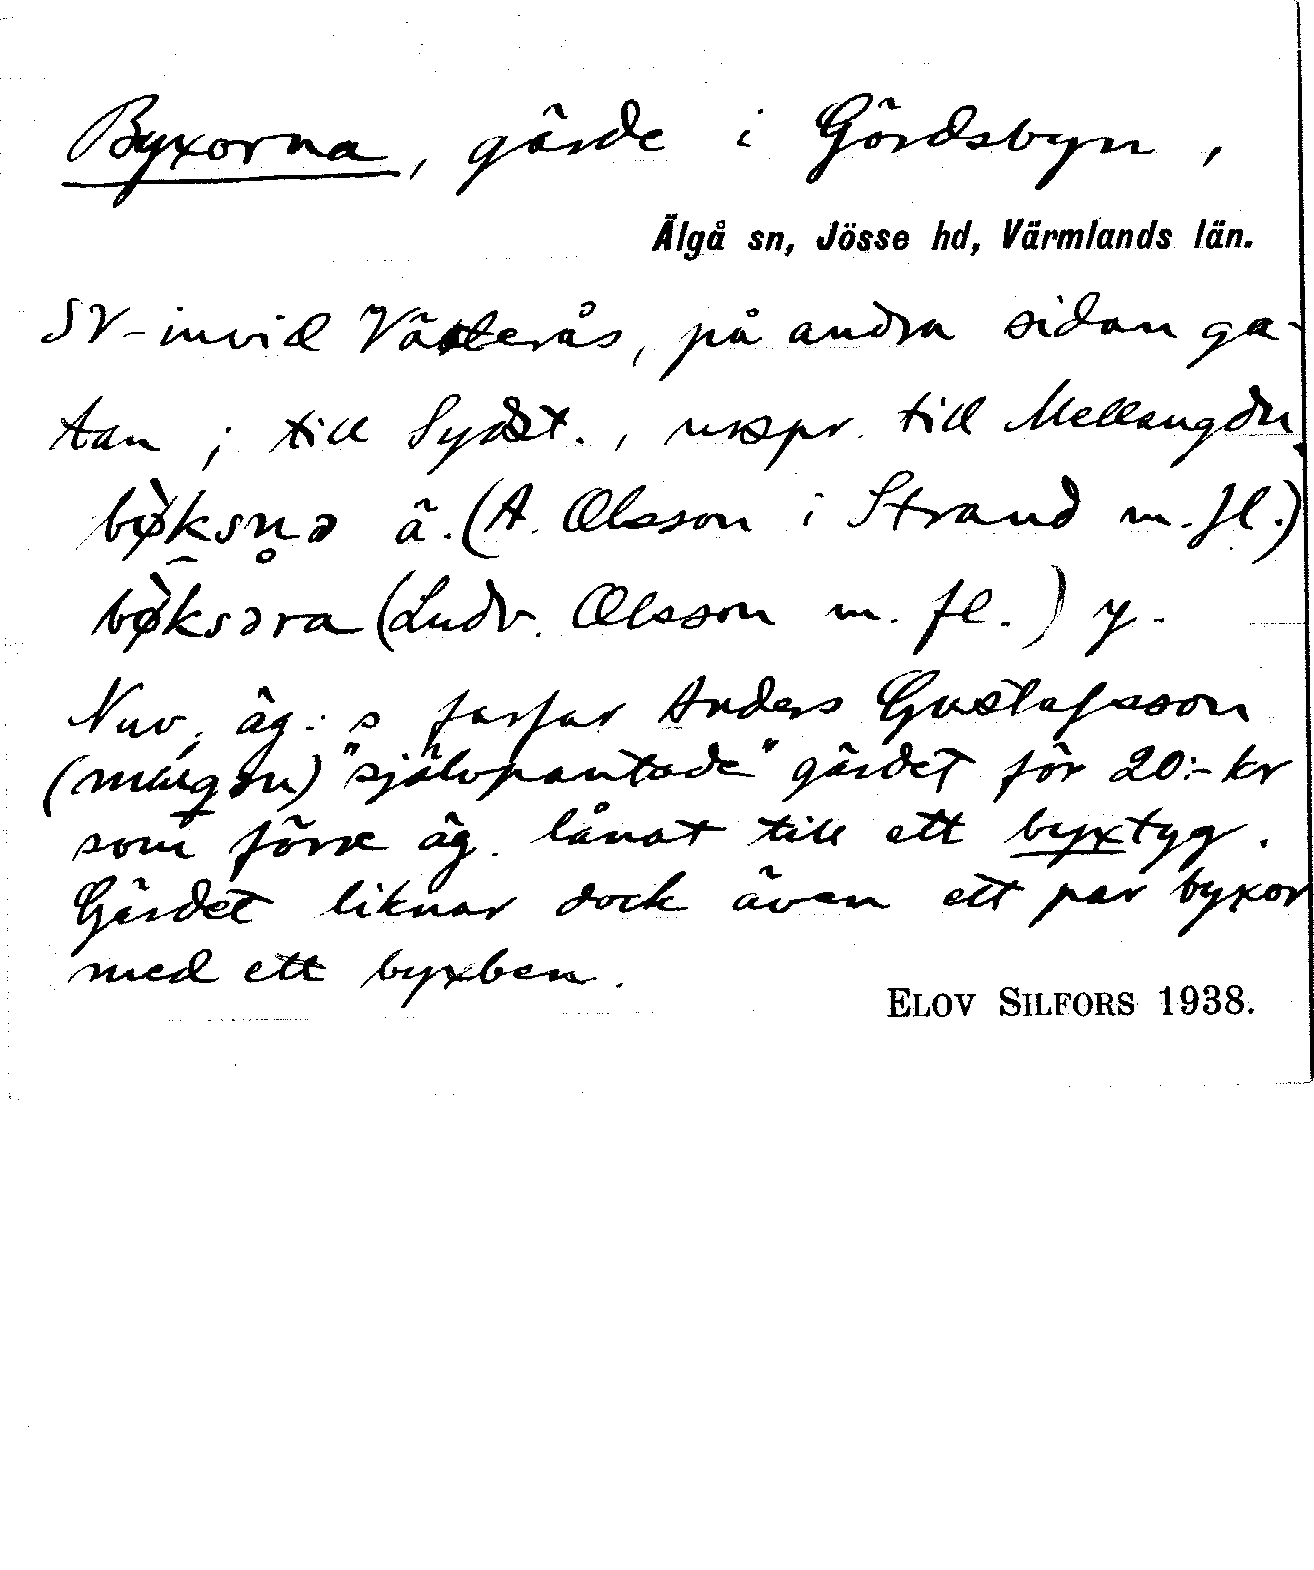 Byxorna, gärde i Gördsbyn,
Älgå sn, Jösse hd, Värmlands län.
SV-invid Västerås, på andra sidan ga-
tan; till Sydst., urspr. till Mellangdn.
bø̀ksn̥ə ä. (A. Olsson i Strand m.fl.)
bø̀ksəra (Ludv. Olsson m. fl.) y.
Nuv. äg:s farfar Anders Gustafsson
"självpantade" gärdet för 20:- kr
som förre äg. lånat till ett byxtyg.
Gärdet liknar dock även ett par byxor
med ett byxben.
ELOV SILFORS 1938.